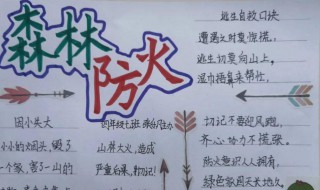 森林防火
逃生自救口诀
遭遇火时莫惊慌,
逃生切莫向山上,
湿巾掩鼻来帮忙,
切记不要迎风跑,
齐心协力不慌张。
防火意识人人拥有,
绿色家园天长地久。
因小失大
小小的烟头,毁了
一个家,害了一山的
四年级七班
山林大火,造成
严重后果,